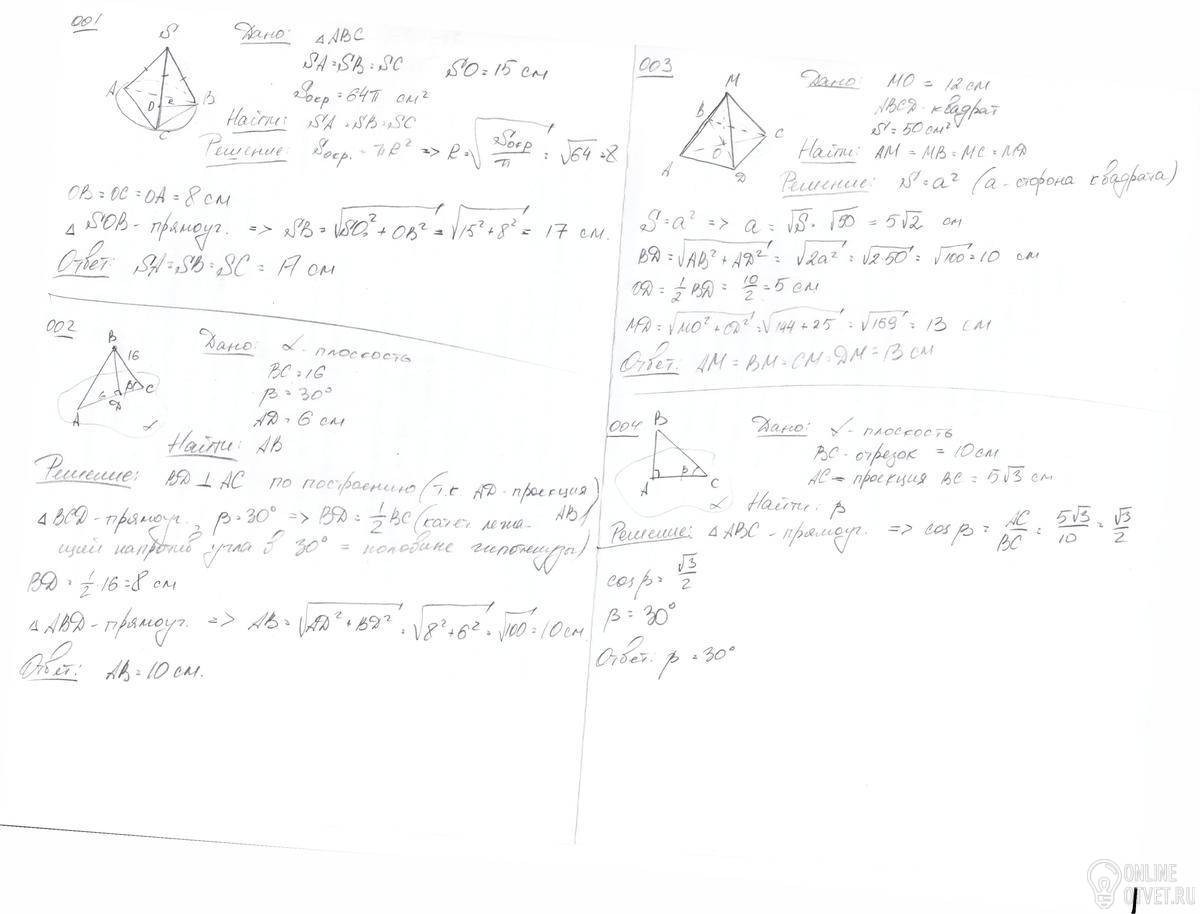 001
S
A
B
O
R
C
Дано: △ABC
SA=SB=SC SO=15 см
Sокр=64π см²
Найти: SA=SB=SC
Решение: Sокр.=πR² => R=√(Sокр/π)=√64=8
OB=OC=OA=8 см
△SOB-прямоуг. => SB=√(SO²+OB²)=√(15²+8²)=17 см.
Ответ: SA=SB=SC=17 см
002
B
16
β
C
6
D
A
α
Дано: α-плоскость
BC=16
β=30°
AD=6 см
Найти: AB
Решение: BD⊥AC по построению (т.к. AD-проекция
AB)
△BCD-прямоуг., β=30° => BD=1/2 BC (катет лежа-
щий напротив угла в 30° = половине гипотенузы)
BD=1/2·16=8 см
△ABD-прямоуг. => AB=√(AD²+BD²)=√(8²+6²)=√100=10 см.
Ответ: AB=10 см.
003
M
B
C
O
A
D
Дано: MO=12 см
ABCD-квадрат
S=50 см²
Найти: AM=MB=MC=MD
Решение: S=a² (a-сторона квадрата)
S=a² => a=√S=√50=5√2 см
BD=√(AB²+AD²)=√(2a²)=√(2·50)=√100=10 см
OD=1/2 BD=10/2=5 см
MD=√(MO²+OD²)=√(144+25)=√169=13 см
Ответ: AM=BM=CM=DM=13 см
004
B
β
A
C
α
Дано: α-плоскость
BC-отрезок =10 см
AC-проекция BC=5√3 см
Найти: β
Решение: △ABC-прямоуг. => cosβ=AC/BC=5√3/10=√3/2
cosβ=√3/2
β=30°
Ответ: β=30°
ONLINE
OTVET.RU